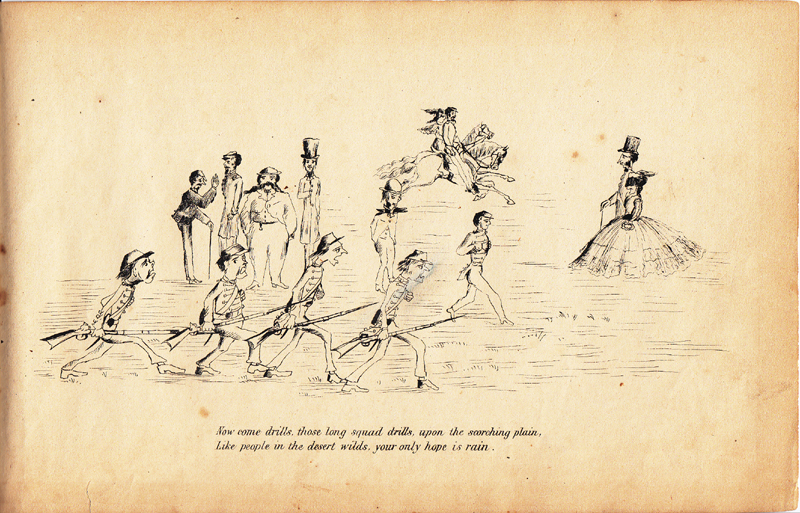 Now come drills, those long squad drills, upon the scorching plain,
Like people in the desert wilds, your only hope is rain.